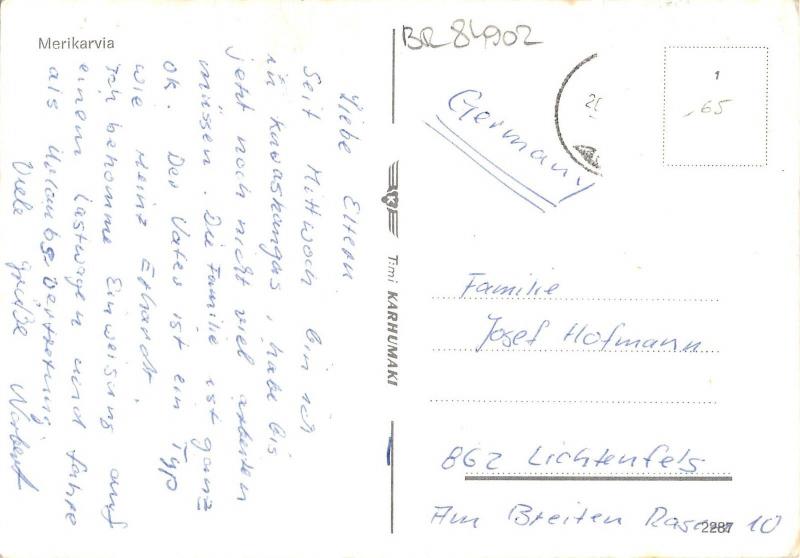 Merikarvia
Liebe Eltern
Seit Mittwoch bin ich
in Kavaskangas, habe bis
jetzt noch nicht viel arbeiten
müssen. Die Familie ist ganz
ok. Der Vater ist ein Typ
wie Heinz Erhardt.
Ich bekomme Einweisung auf
einem Lastwagen und fahre
als Urlaubsvertretung
Viele Grüße Norbert
BR 84902
Germany
1
,65
Timi KARHUMAKI
Familie
Josef Hofmann
862 Lichtenfels
Am Breiten Rasen 10
2287